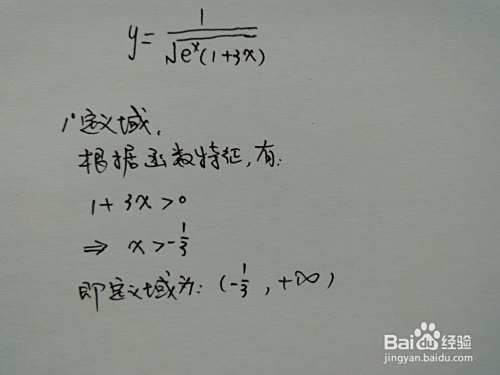 y = 1/√(e^x(1+3x))
1°定义域,
根据函数特征,有:
1+3x>0
⇒ x>-1/3
即定义域为: (-1/3, +∞)
Baidu经验
jingyan.baidu.com